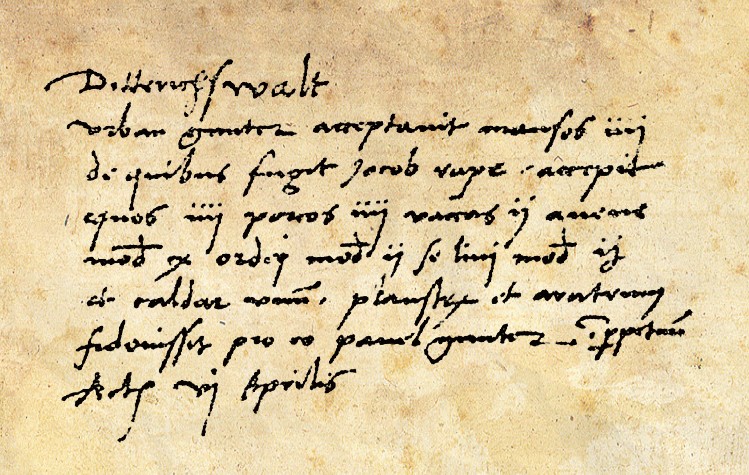 Ditterichswalt
Urban gunter acceptavit mansos iiii
de quibus fugit Jacob rape accepit
equos iiii porcos iiii vaccas ij avene
mod ex ordej mod ij se lini mod
et caldar unum plaustrum et aratrum
fideiusset pro eo pavel gunter perpetuum
Act vj Aprilis